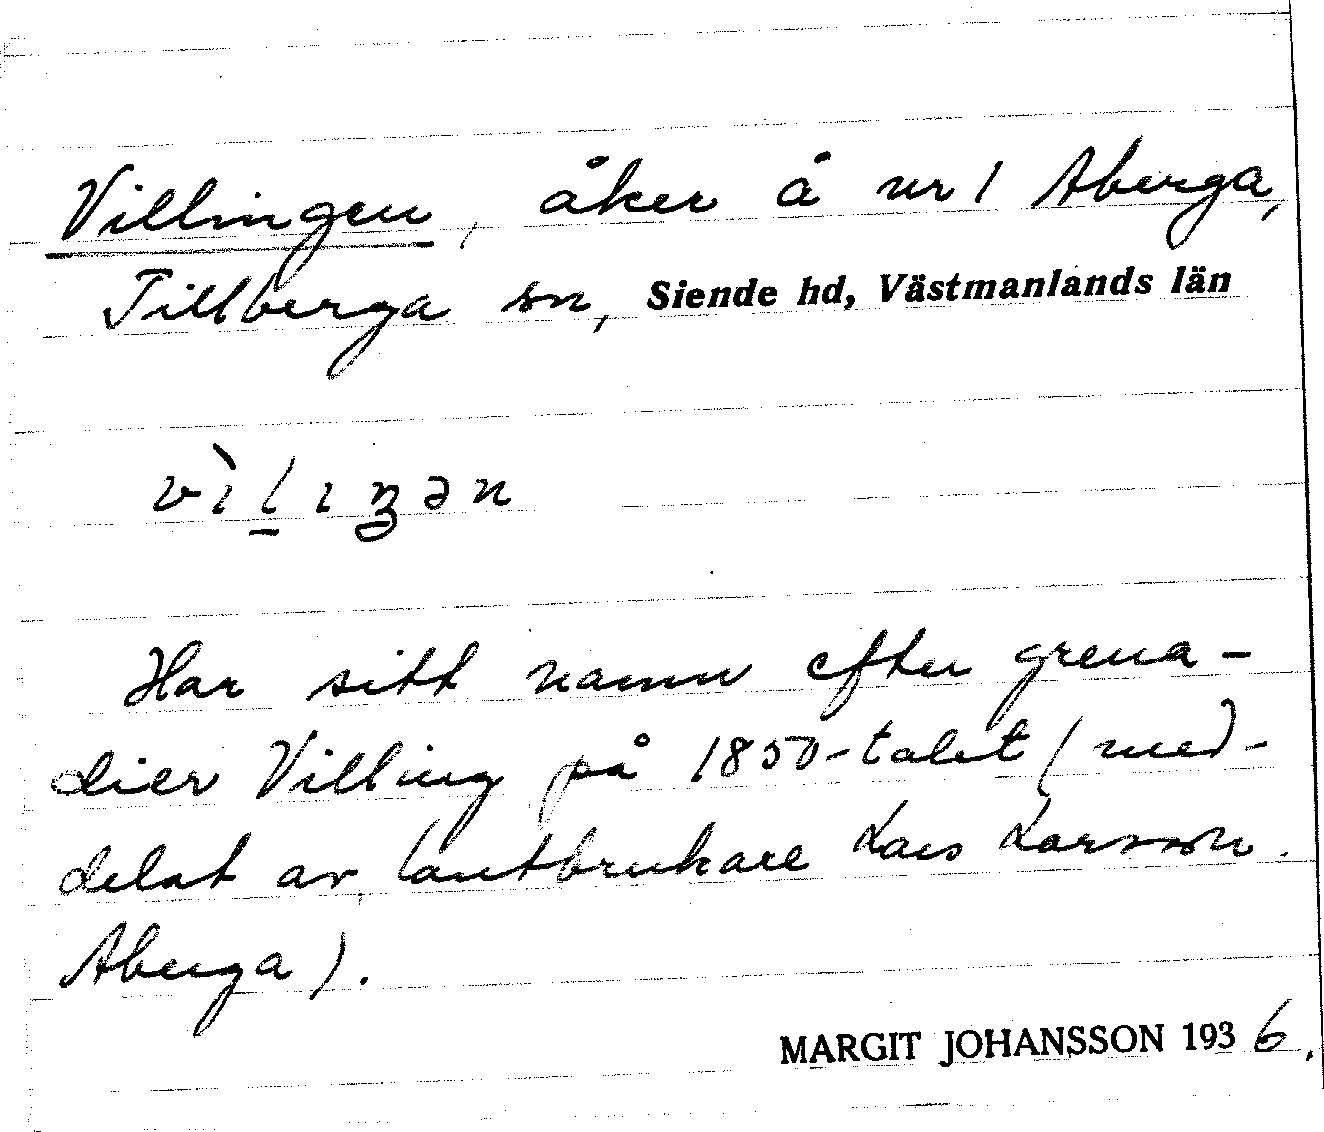 Villingen, åker å nr 1 Aberga,
Tillberga sn, Siende hd, Västmanlands län
vìl̠ıʒən
Har sitt namn efter grena-
dier Villing på 1850-talet (med-
delat av lantbrukare Lars Larsson.
Aberga).
MARGIT JOHANSSON 1936.